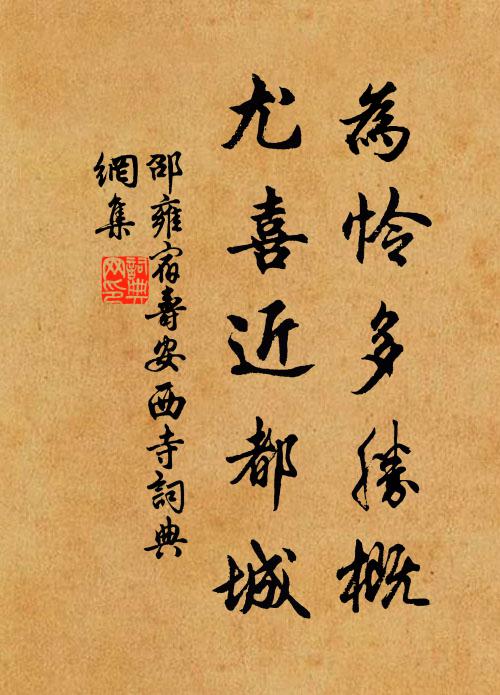 為怜多勝概
尤喜近都城
邵雍宿壽安西寺詞典
網集
詞典
网印